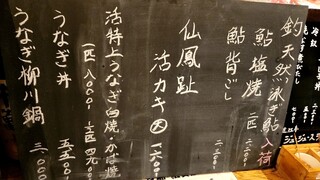 釣天然泳ぎ鮎入荷
鮎塩焼 二匹 二二〇〇
鮎背ごし 二三〇〇
仙鳳趾
活カキ大 一六〇〇
活特上うなぎ白焼・かば焼
一匹 八〇〇〇 半匹 四九〇〇
うなぎ丼 五五〇〇
うなぎ柳川鍋 三〇〇〇